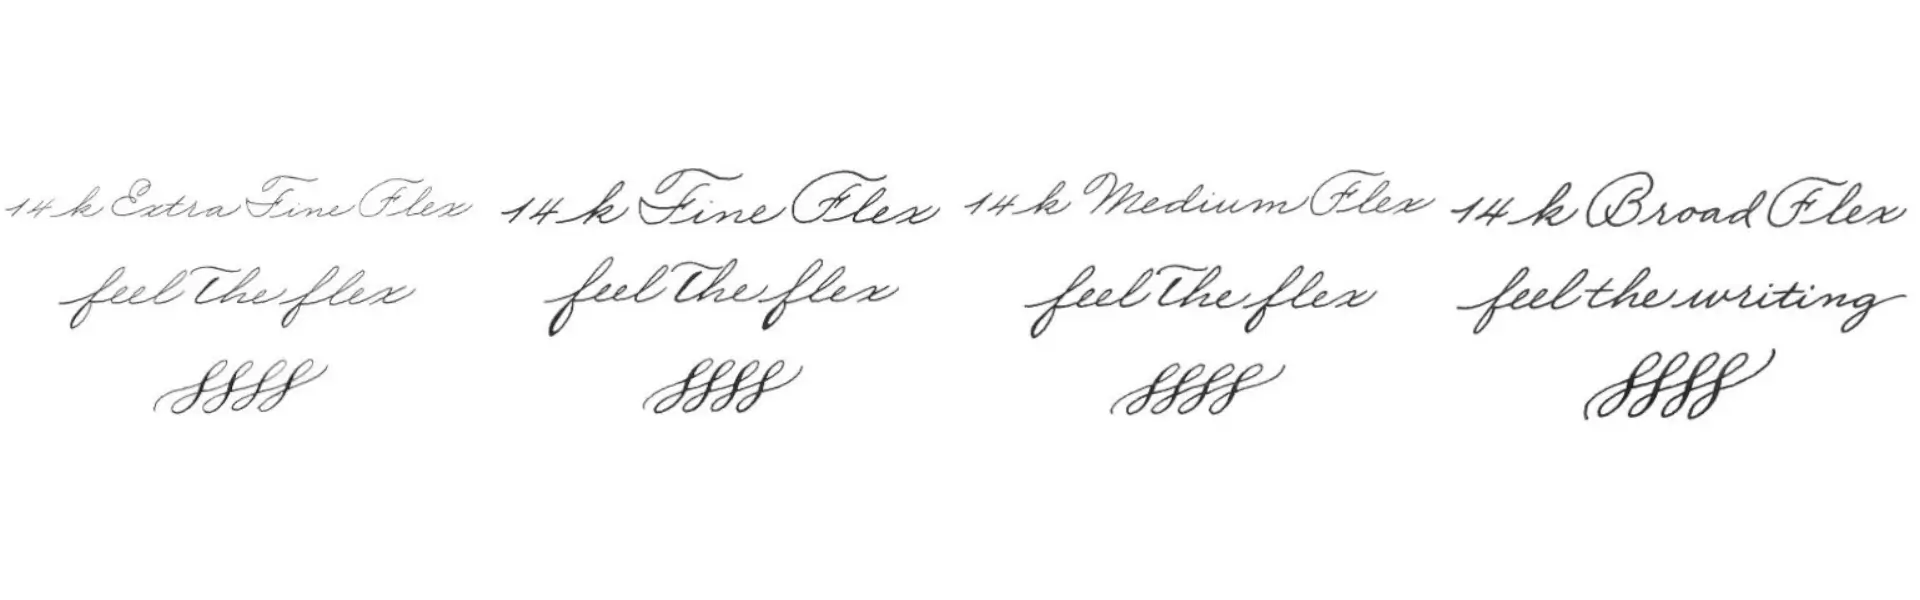 14k Extra Fine Flex
feel The flex
14k Fine Flex
feel The flex
14k Medium Flex
feel The flex
14k Broad Flex
feel the writing